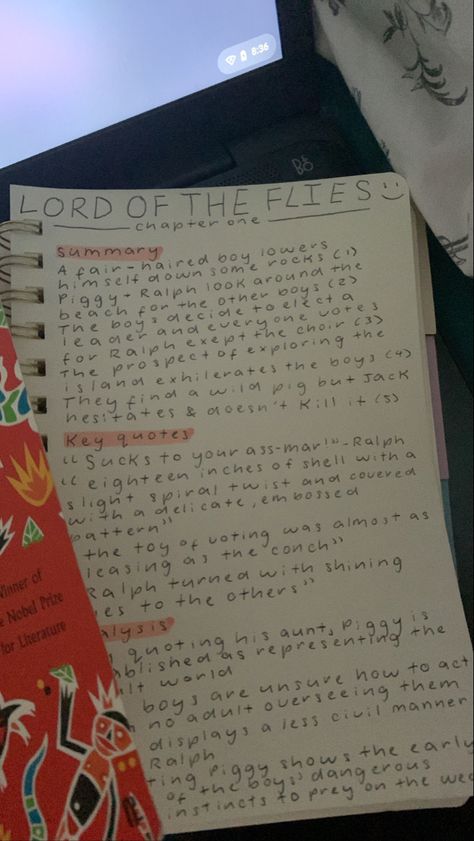 8:36
B&O
LORD OF THE FLIES
chapter one
summary
A fair-haired boy lowers
himself down some rocks (1)
Piggy + Ralph look around the
beach for the other boys (2)
The boys decide to elect a
leader and everyone votes
for Ralph exept the choir (3)
The prospect of exploring the
island exhilerates the boys (4)
They find a wild pig but Jack
hesitates & doesn't kill it (5)
Key quotes
"Sucks to your ass-mar!"-Ralph
"eighteen inches of shell with a
slight spiral twist and covered
with a delicate, embossed
pattern"
the toy of voting was almost as
leasing as the conch"
Ralph turned with shining
es to the others"
alysis
quoting his aunt, Piggy is
ablished as representing the
ult world
boys are unsure how to act
no adult overseeing them
displays a less civil manner
Ralph
ting Piggy shows the early
of the boys' dangerous
instincts to prey on the wea
Winner of
e Nobel Prize
for Literature